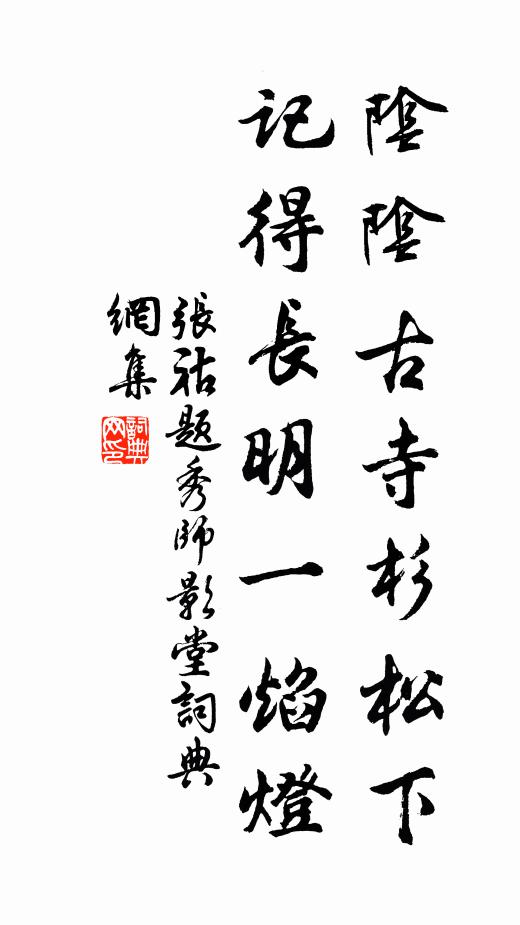 陰陰古寺杉松下
記得長明一焰燈
張祜題秀師影堂詞典
網集
詞典
网印